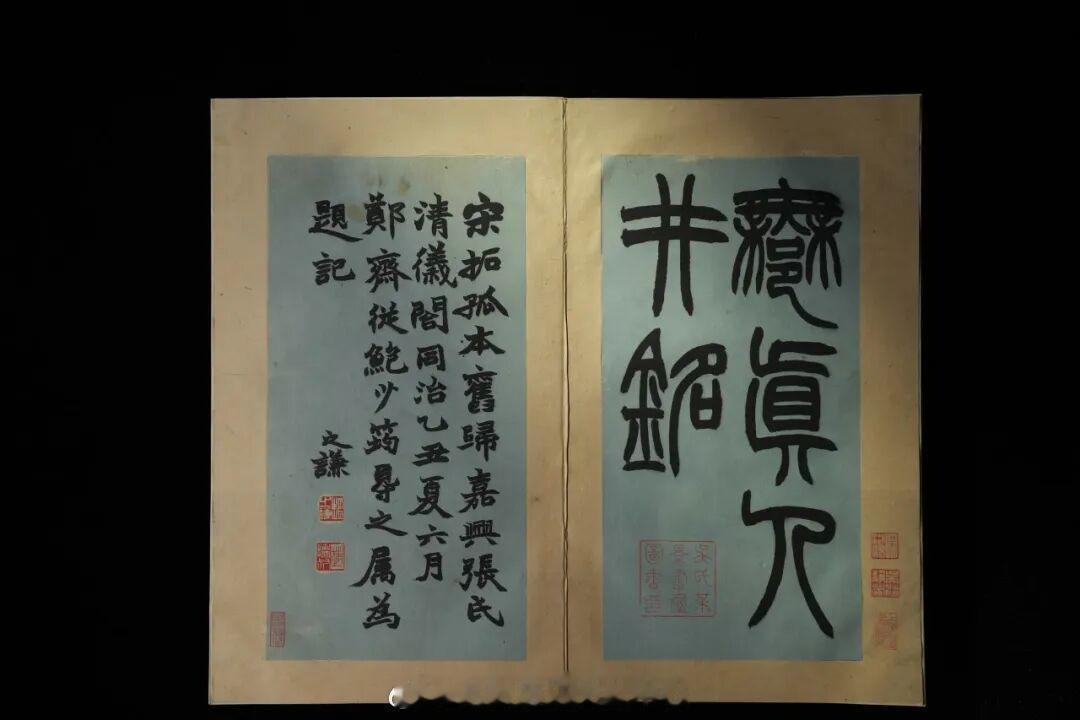 鄦眞人
井銘
宋拓孤本舊歸嘉興張氏
清儀閣同治乙丑夏六月
鄭齋從鮑少筠得之属為
題記
之謙